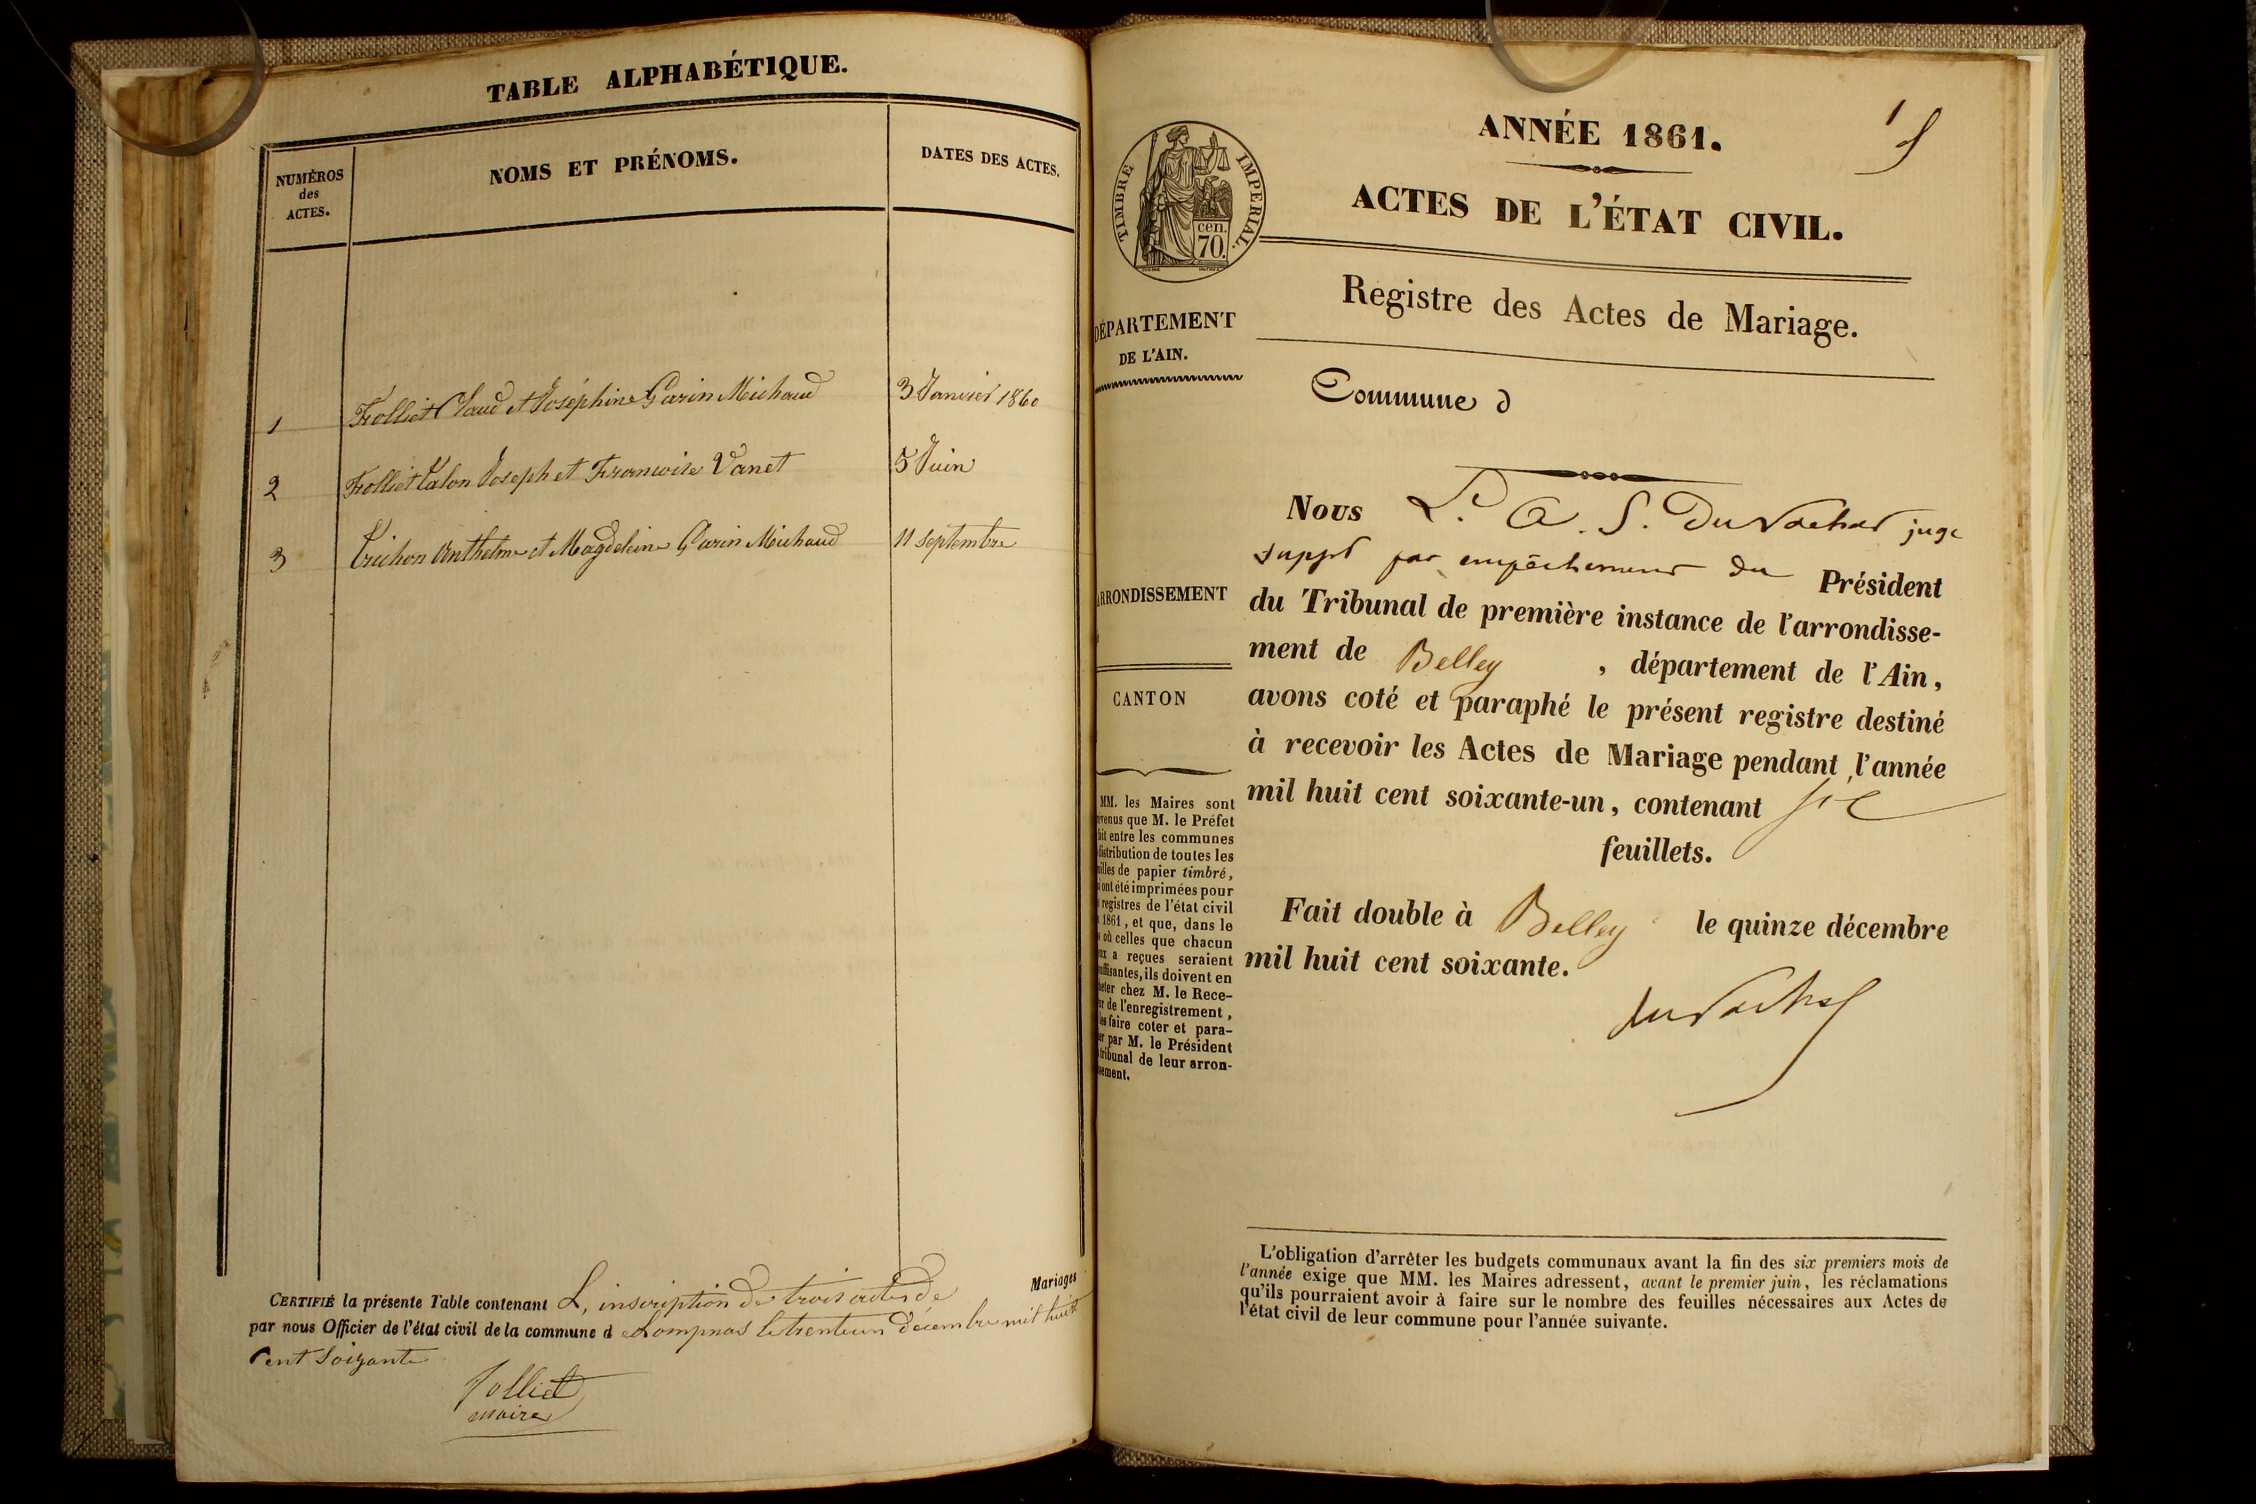 TABLE ALPHABÉTIQUE.
NUMÉROS
des
ACTES.
NOMS ET PRÉNOMS.
DATES DES ACTES.
1 Folliet Claud et Joséphine Garin Michaud 3 Janvier 1860
2 Folliet Talon Joseph et Francoise Vanet 5 Juin
3 Trichon Anthelme et Magdeleine Garin Michaud 11 septembre
CERTIFIÉ la présente Table contenant L, inscription de trois actes de Mariages
par nous Officier de l'état civil de la commune d Lompnas le trenteun décembre mil huit
Cent Soixante
Folliet
maire
1
ANNÉE 1861.
ACTES DE L'ÉTAT CIVIL.
TIMBRE IMPERIAL.
cen.
70.
Registre des Actes de Mariage.
DÉPARTEMENT
DE L'AIN.
Commune d
Nous L. A. S. Duvachat juge
suppt par empêchement du Président
du Tribunal de première instance de l'arrondisse-
ment de Belley , département de l'Ain,
avons coté et paraphé le présent registre destiné
à recevoir les Actes de Mariage pendant l'année
mil huit cent soixante-un, contenant six
feuillets.
Fait double à Belley le quinze décembre
mil huit cent soixante.
Duvachat
ARRONDISSEMENT
CANTON
MM. les Maires sont
que M. le Préfet
entre les communes
distribution de toutes les
de papier timbré,
ont été imprimées pour
registres de l'état civil
1861, et que, dans le
où celles que chacun
a reçues seraient
ils doivent en
chez M. le Rece-
de l'enregistrement,
les faire coter et para-
par M. le Président
tribunal de leur arron-
L'obligation d'arrêter les budgets communaux avant la fin des six premiers mois de
l'année exige que MM. les Maires adressent, avant le premier juin, les réclamations
qu'ils pourraient avoir à faire sur le nombre des feuilles nécessaires aux Actes de
l'état civil de leur commune pour l'année suivante.